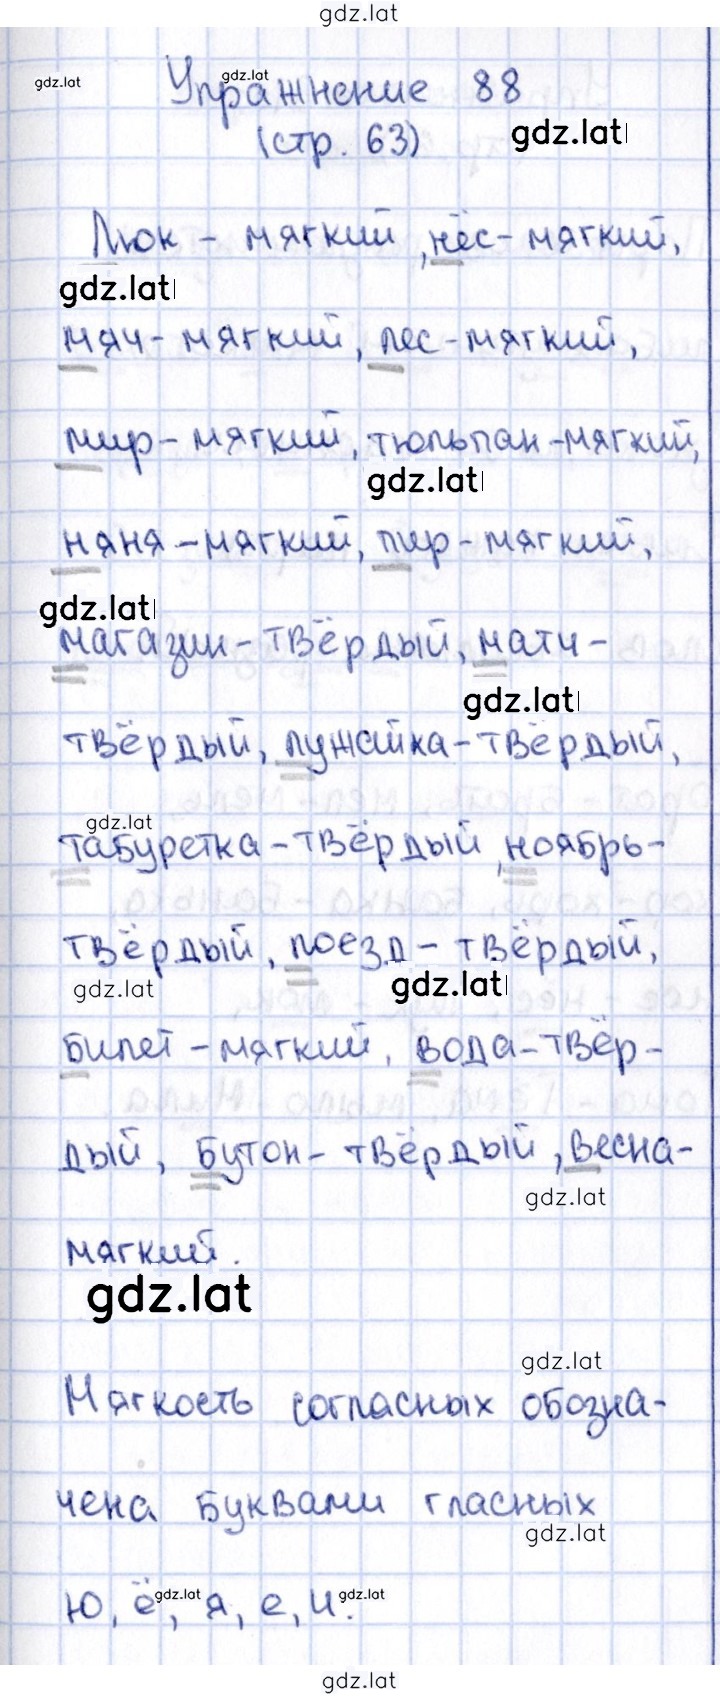 gdz.lat
gdz.lat
gdz.lat
Упражнение 88
(стр. 63)
gdz.lat
Люк - мягкий, нёс - мягкий,
gdz.lat
мяч - мягкий, пес - мягкий,
мир - мягкий, тюльпан - мягкий,
gdz.lat
няня - мягкий, пир - мягкий,
gdz.lat
магазин - твёрдый, матч -
gdz.lat
твёрдый, лужайка - твёрдый,
gdz.lat
табуретка - твёрдый, ноябрь -
твёрдый, поезд - твёрдый,
gdz.lat
gdz.lat
билет - мягкий, вода - твёр-
дый, бутон - твёрдый, весна -
gdz.lat
мягкий.
gdz.lat
gdz.lat
Мягкость согласных обозна-
чена буквами гласных
gdz.lat
ю, ё, я, е, и.
gdz.lat
gdz.lat
gdz.lat